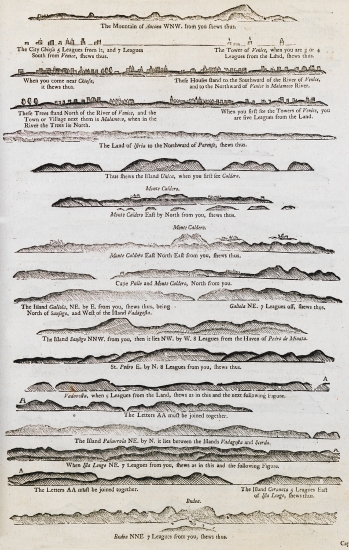 The Mountain of Ancona WNW. from you shews thus.
The City Chiosa 5 Leagues from it, and 7 Leagues
South from Venice, shews thus.
The Tower of Venice, when you are 3 or 4
Leagues from the Land, shews thus.
When you come near Chiosa,
it shews thus.
These Houses stand to the Southward of the River of Venice,
and to the Northward of Venice is Malamoco River.
These Trees stand North of the River of Venice, and the
Town or Village next them is Malamoco, when in the
River the Trees lie North.
When you first see the Towers of Venice, you
are five Leagues from the Land.
The Land of Istria to the Northward of Parenso, shews thus.
Thus shews the Island Unica, when you first see Caldero.
Monte Caldero.
Monte Caldero East by North from you, shews thus.
Monte Caldero.
Monte Caldero East North East from you, shews thus.
Cape Polle and Monte Caldero, North from you.
The Island Galiola, NE. by E. from you, shews thus, being
North of Sansego, and West of the Island
Galiola NE. 7 Leagues off, shews thus.
The Island Sansego NNW. from you, then it lies NW. by W. 8 Leagues from the Haven of Pedro de
St. Pedro E. by N. 8 Leagues from you, shews thus.
A
when 5 Leagues from the Land, shews as in this and the next following Figure.
A
The Letters AA must be joined together.
The Island NE. by N. it lies between the Islands and
A
When Isla Longo NE. 7 Leagues from you, shews as in this and the following Figure.
A
The Letters AA must be joined together.
The Island 5 Leagues East
of Isla Longo, shews thus.
Budoa.
Budoa NNE 7 Leagues from you, shews thus.